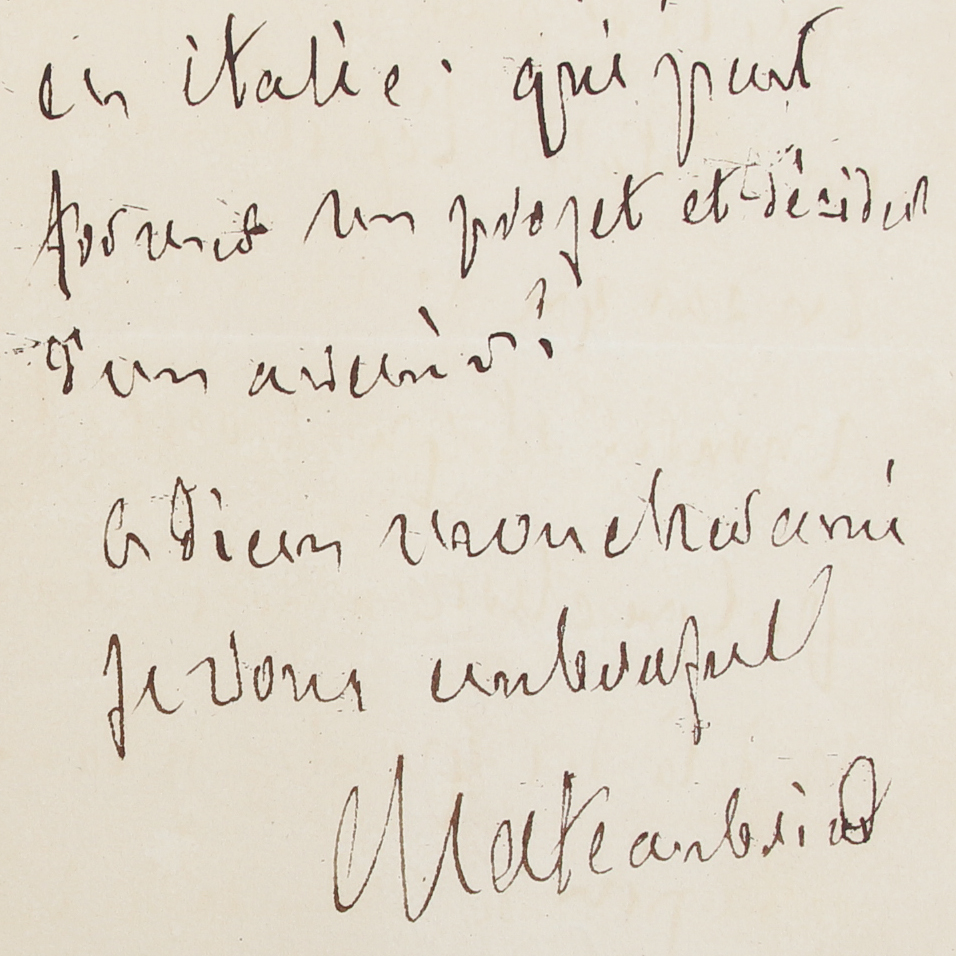 en italie. qui peut
former un projet et décider
d'un avenir?
adieu mon cher ami
je vous embrasse
Chateaubriand